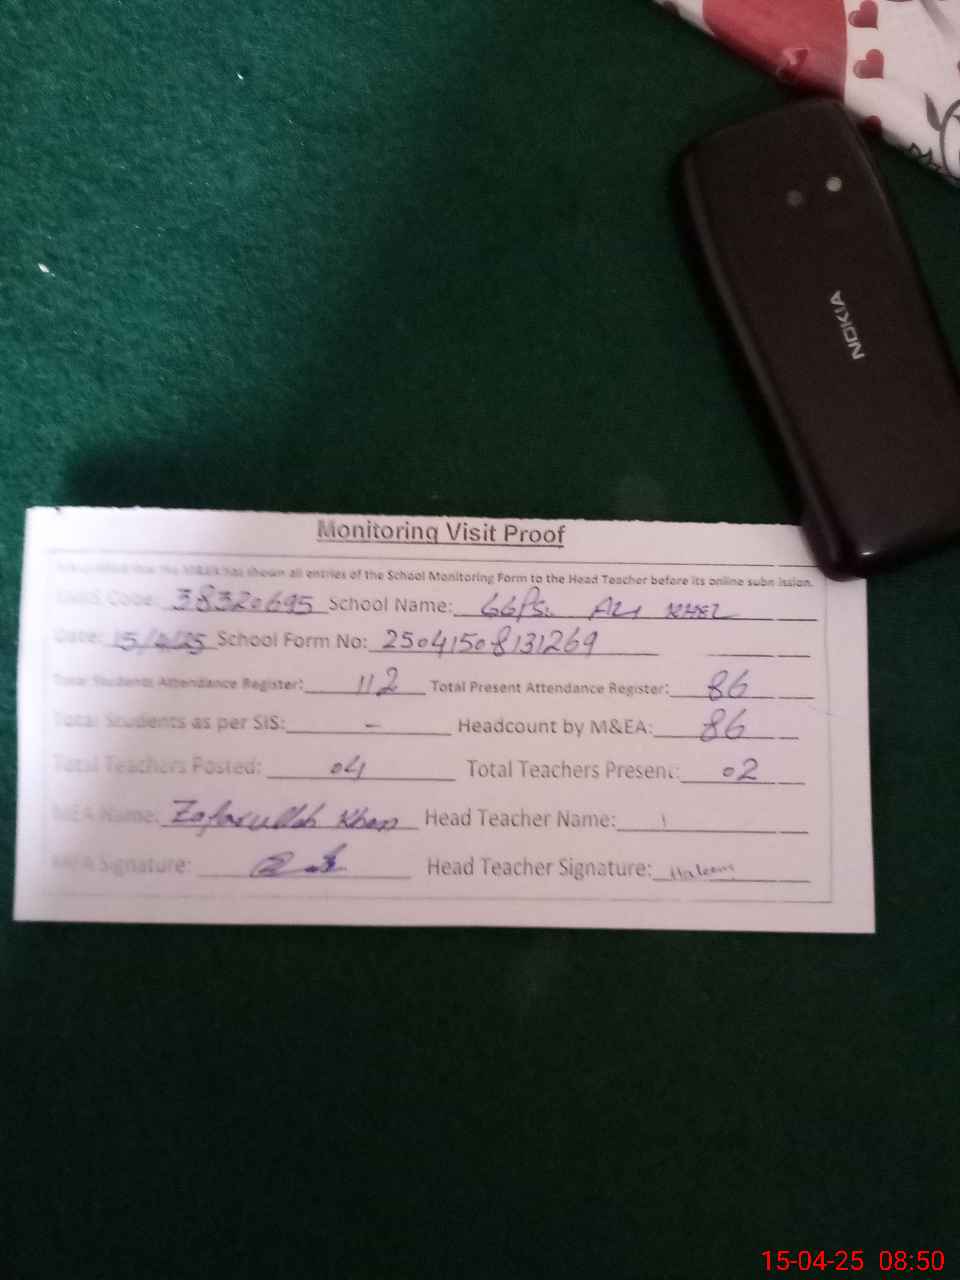 NOKIA
Monitoring Visit Proof
has shown all entries of the School Monitoring Form to the Head Teacher before its online submission.
Code: 38320695 School Name: GGPS. Ali Khel
Date: 15/4/25 School Form No: 25041508131269
Total Students Attendance Register: 112 Total Present Attendance Register: 86
Total Students as per SIS: - Headcount by M&EA: 86
Total Teachers Posted: 04 Total Teachers Present: 02
MEA Name: Zafarullah Khan Head Teacher Name:
MEA Signature: Head Teacher Signature:
15-04-25 08:50